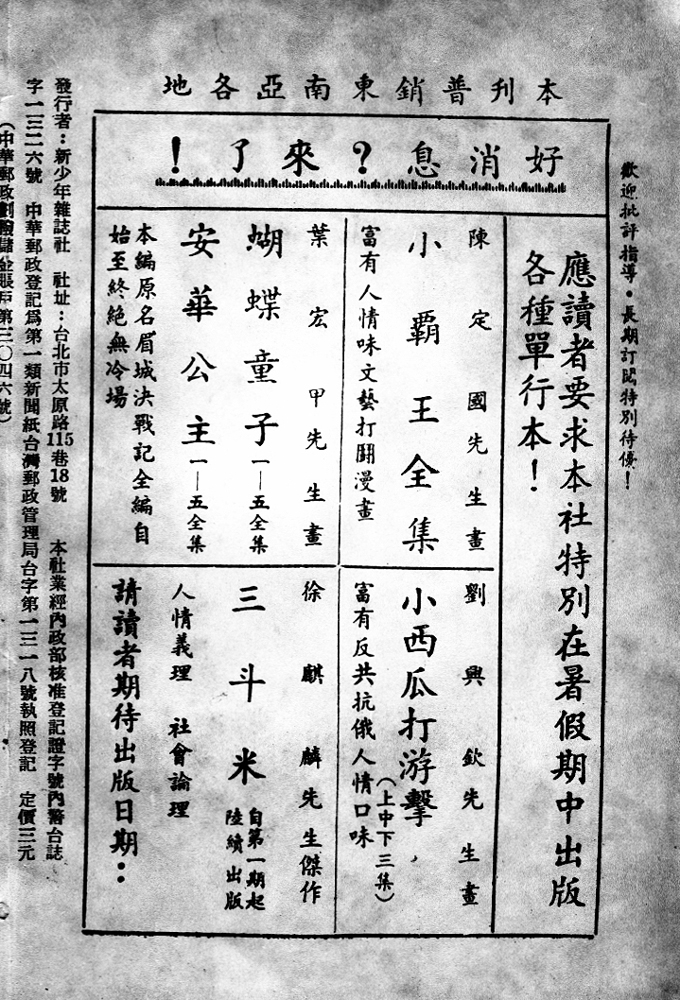 本刊普銷東南亞各地
好消息？來了！
歡迎批評指導。長期訂閱特別待優！
應讀者要求本社特別在暑假期中出版
各種單行本！
陳定國先生畫
小霸王全集
富有人情味文藝打鬪漫畫
劉興欽先生畫
小西瓜打游擊
（上中下三集）
富有反共抗俄人情口味
葉宏甲先生畫
蝴蝶童子一—五全集
安華公主一—五全集
本編原名眉城決戰記全編自
始至終絕無冷場
徐麒麟先生傑作
三斗米
自第一期起
陸續出版
人情義理 社會論理
請讀者期待出版日期：
發行者：新少年雜誌社 社址：台北市太原路115巷18號 本社業經內政部核准登記證字號內警台誌
字一三二六號 中華郵政登記爲第一類新聞紙台灣郵政管理局台字第一三一八號執照登記 定價三元
（中華郵政劃撥儲金賬戶第三〇四六號）